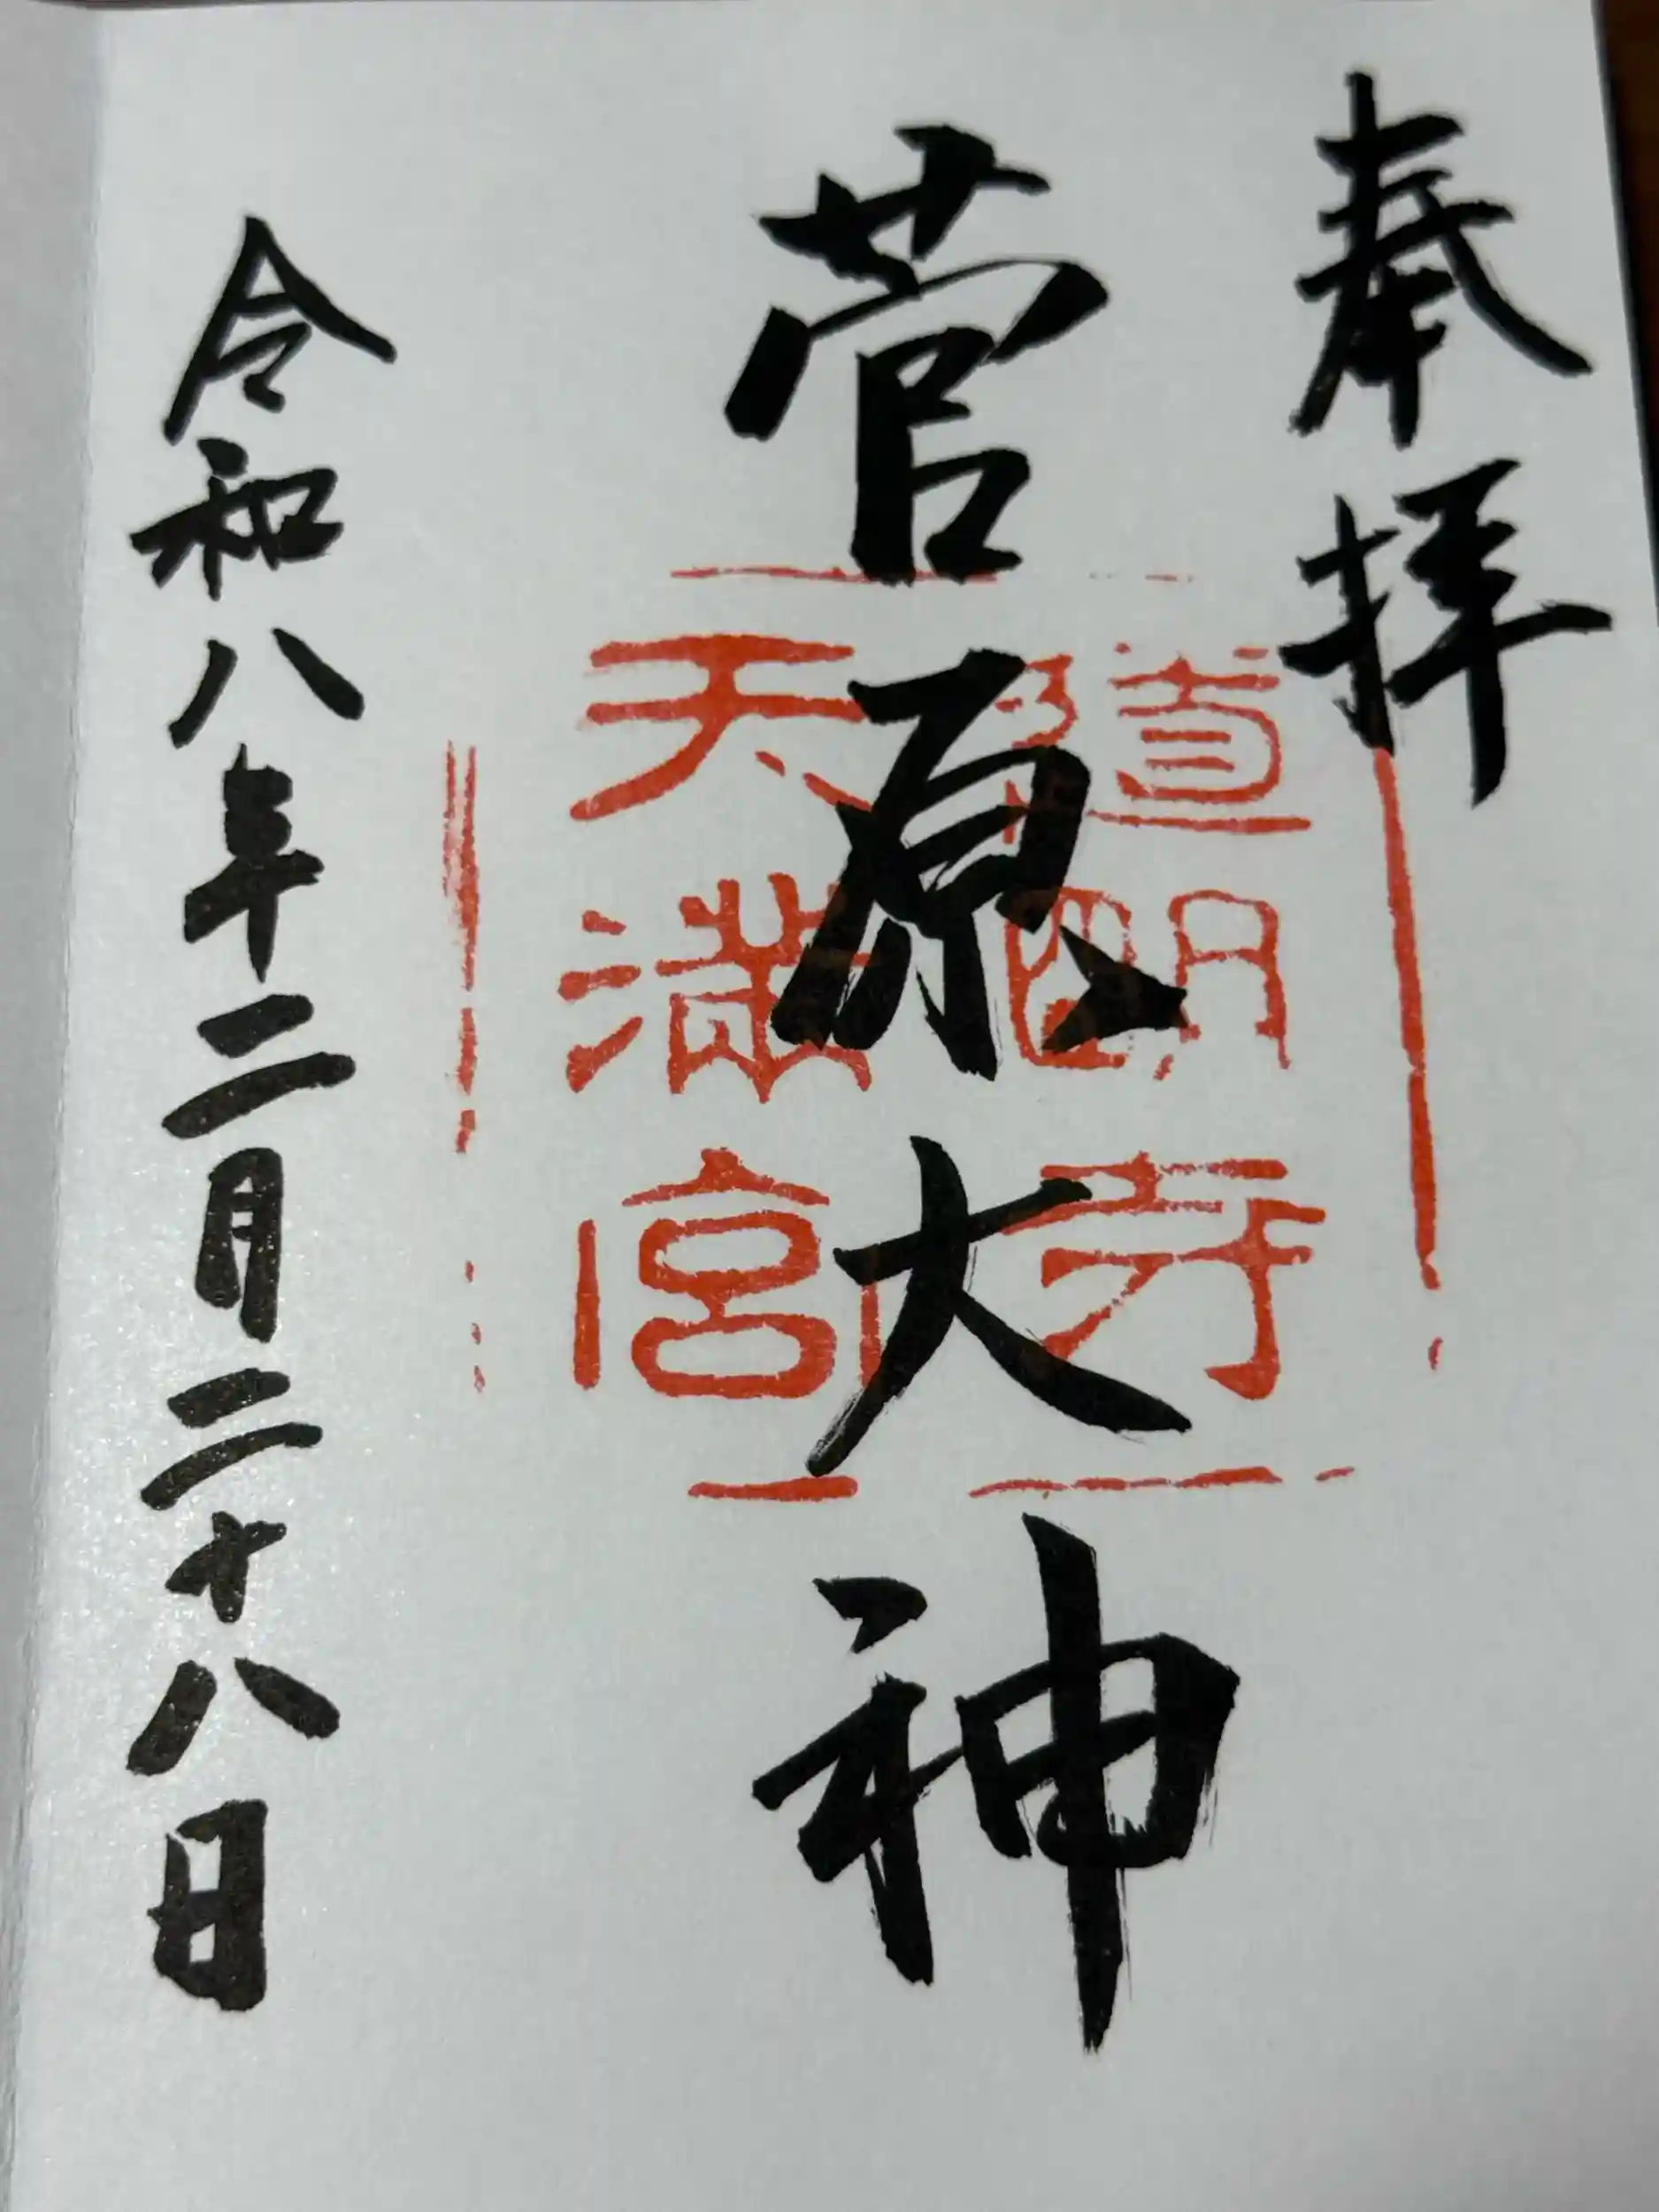 奉拝
菅原大神
道明寺
天満宮
令和八年二月二十八日